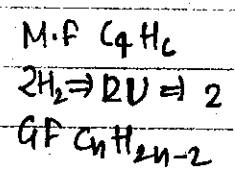 M.F C4 H6
2H2 ⇒ DU ⇒ 2
GF CnH2n-2